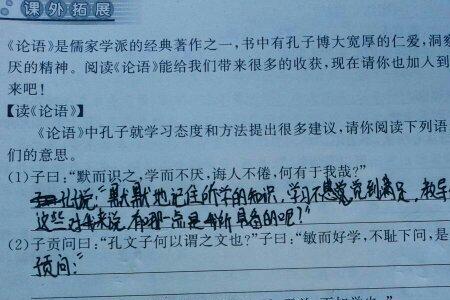 课外拓展
《论语》是儒家学派的经典著作之一,书中有孔子博大宽厚的仁爱,洞察
厌的精神。阅读《论语》能给我们带来很多的收获,现在请你也加入到
来吧!
【读《论语》】
《论语》中孔子就学习态度和方法提出很多建议,请你阅读下列语
们的意思。
(1)子曰:“默而识之,学而不厌,诲人不倦,何有于我哉?”
孔子说:“默默地记住所学的知识,学习不感觉到满足,教导
这些对我来说,有哪一点是我所具备的呢?”
(2)子贡问曰:“孔文子何以谓之文也?”子曰:“敏而好学,不耻下问,是
贡问:“